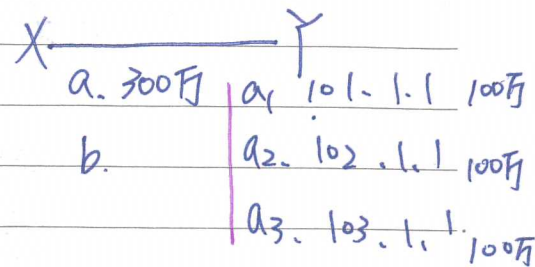 X Y
a. 300万 a1 101.1.1 100万
b. a2. 102.1.1 100万
a3. 103.1.1. 100万